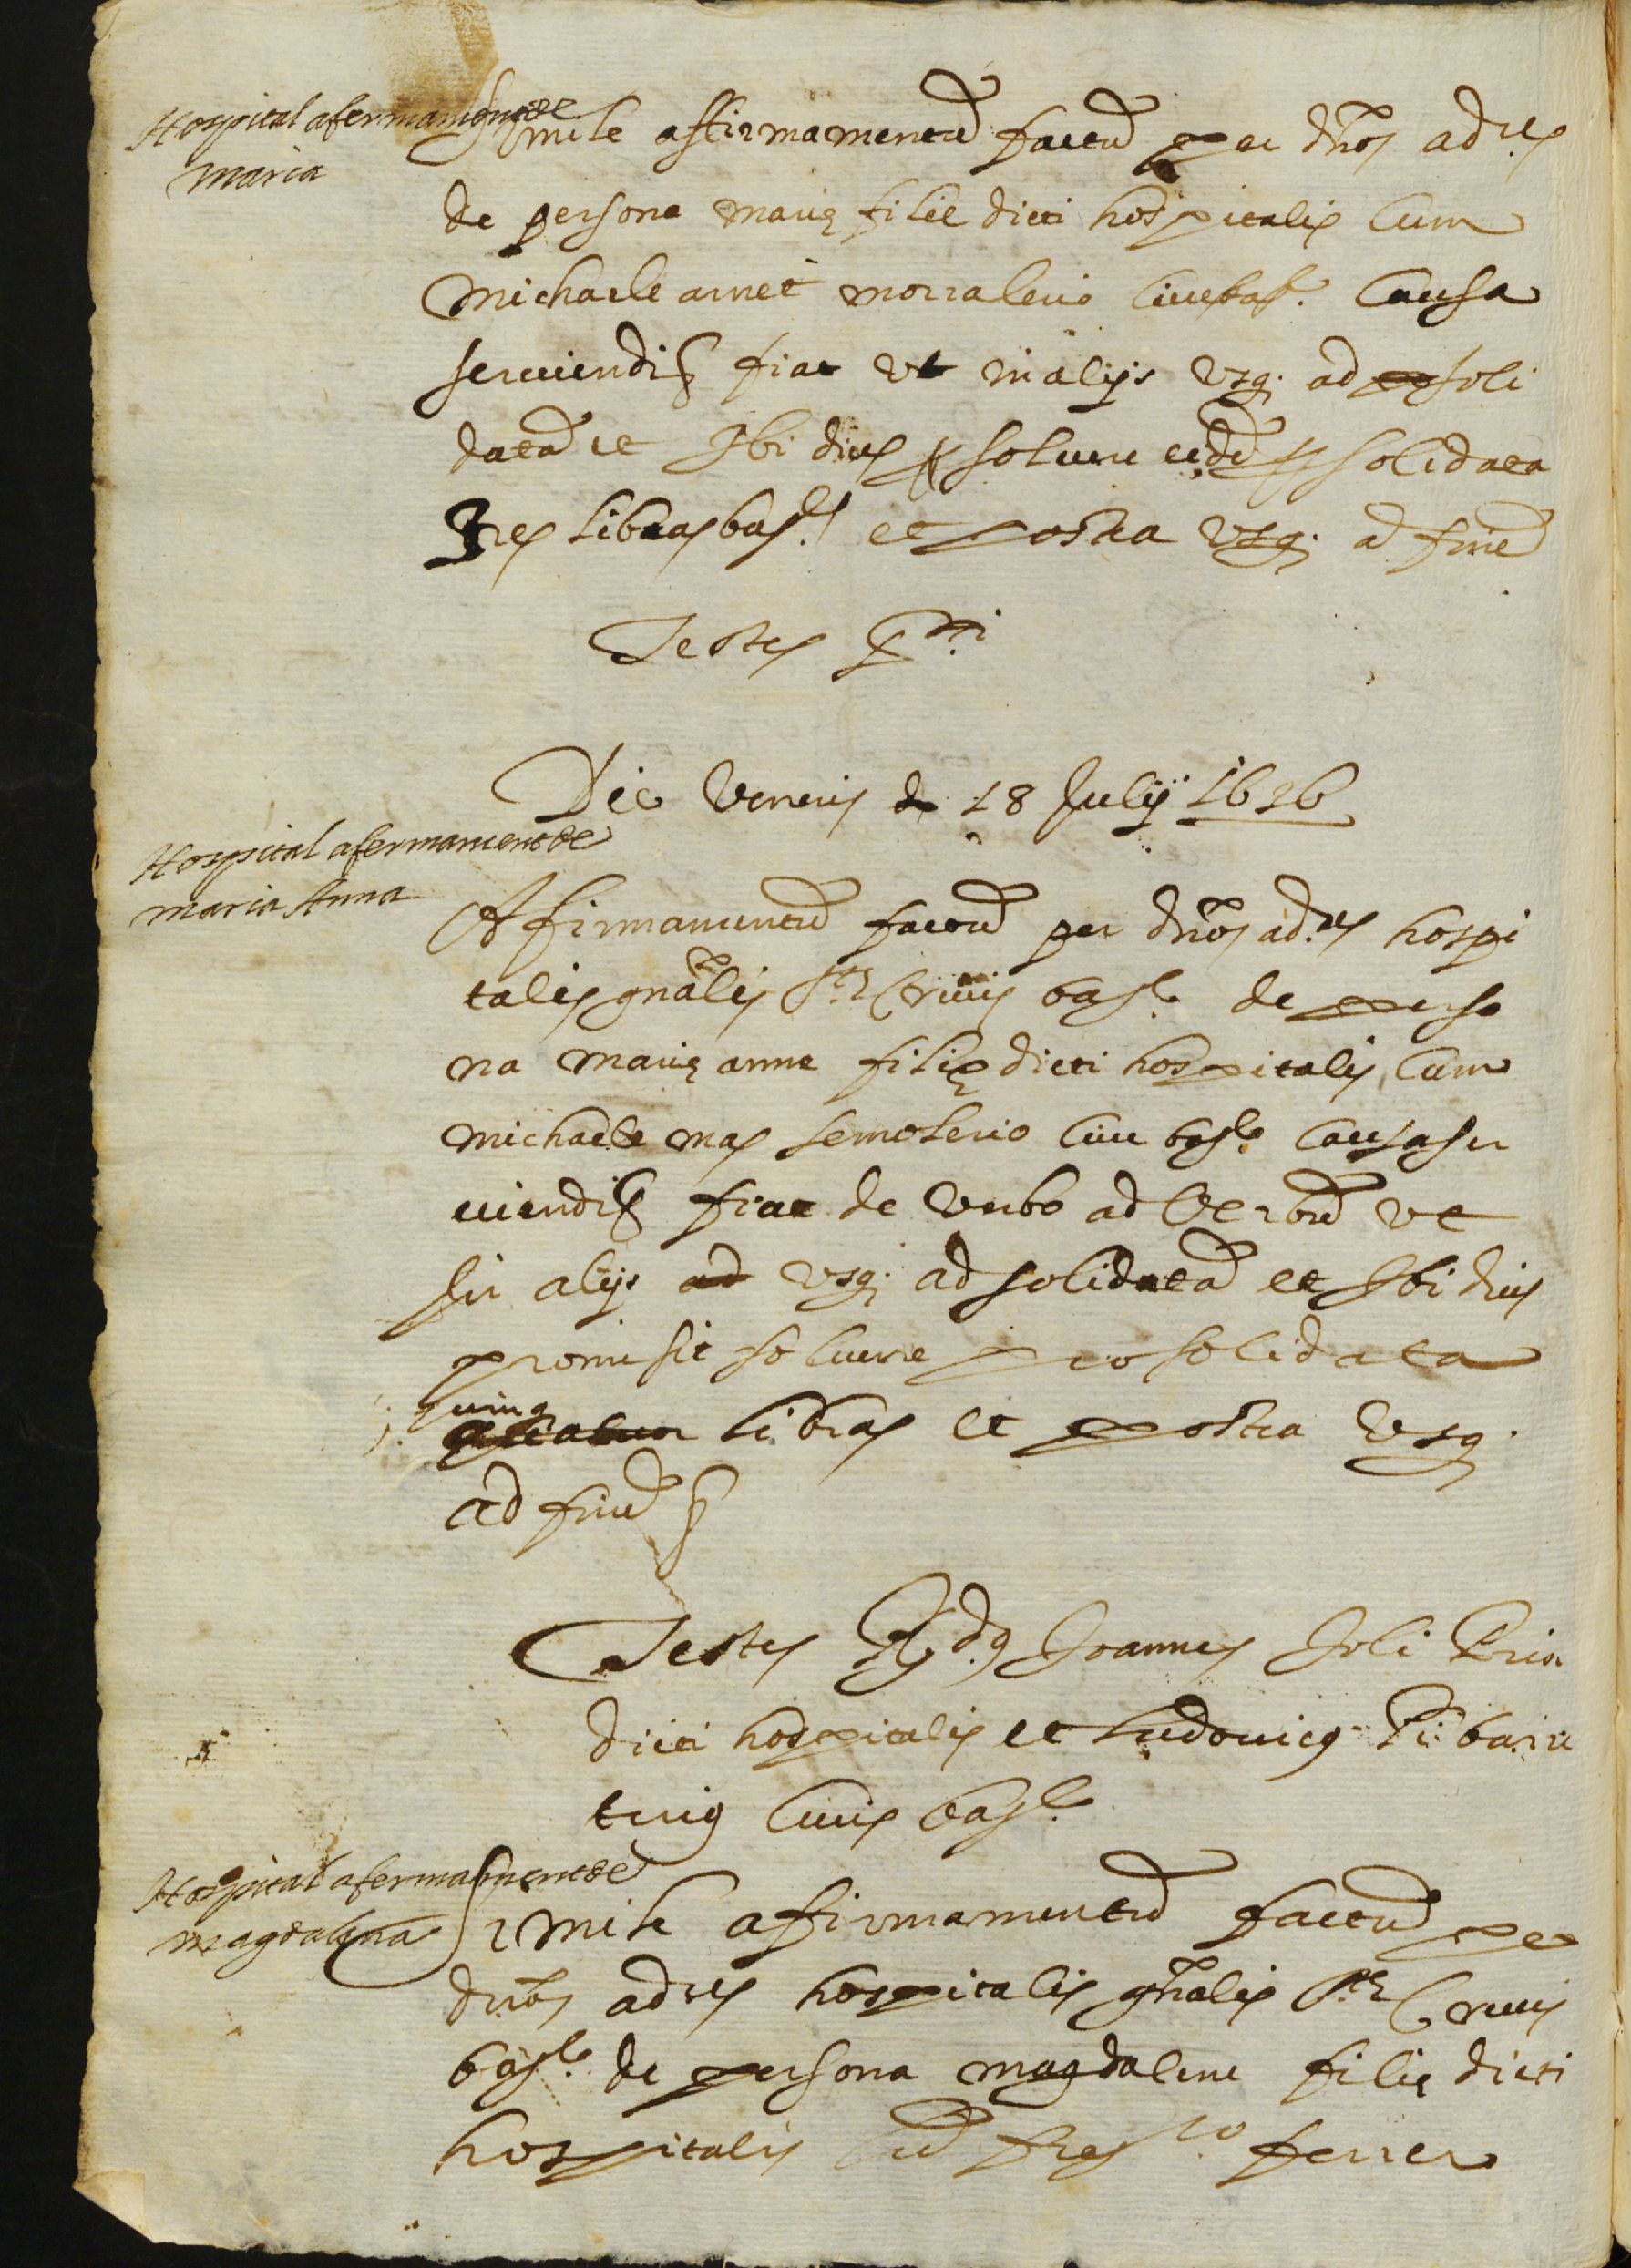 Hospital afermament de
maria
Simile affirmamentū factū per dños ad.res
de persona marię filie dicti hospitalis cum
michaele arnet morralerio cive bar. causa
serviendi &c fiat ut in alijs usq. ad soli
datā et Ibi dies solvere eidē solidata
Tres libras bar. et postea usq. ad finē
Testes p.ti
Die Veneris 18 Julij 1626
Hospital afermament de
maria Anna
Afirmamentū factū per dños ad.res hospi
talis gñalis S.tę Crucis bar.e de perso
na marię anne filię dicti hospitalis cum
michaele mas semolerio cive bar.e causa ser
viendi &c fiat de verbo ad verbū ut
In alijs ad usq. ad solidatā et Ibi dies
promisit solvere pro solidata
quinq
libras et postea usq.
ad finē &c
Testes R.dus Joannes Joli Prior
dicti hospitalis et Ludovicus Ribair
civis bar.e
Hospital afermament de
magdalena
Simile afirmamentū factū per
dños ad.res hospitalis gñalis S.tę Crucis
bar.e de persona magdalene filię dicti
hospitalis cū fran.co ferrer